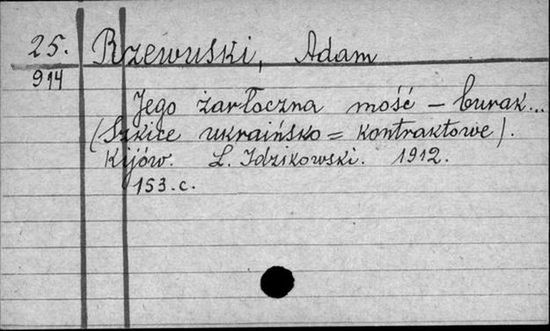 25.
914
Rzewuski, Adam
Jego żarłoczna mość – burak...
(Szkice ukraińsko = kontraktowe).
Kijów. L. Idzikowski. 1912.
153.c.